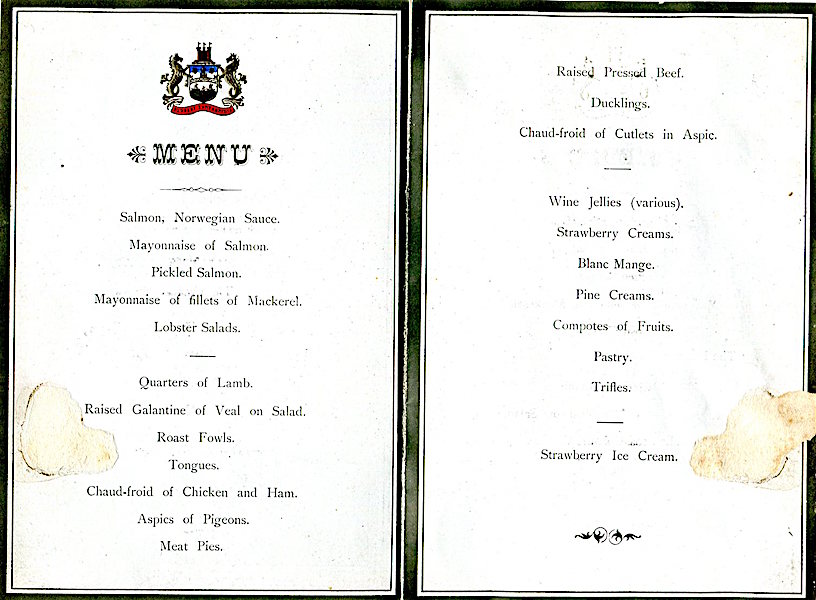 MENU
Salmon, Norwegian Sauce.
Mayonnaise of Salmon.
Pickled Salmon.
Mayonnaise of fillets of Mackerel.
Lobster Salads.
Quarters of Lamb.
Raised Galantine of Veal on Salad.
Roast Fowls.
Tongues.
Chaud-froid of Chicken and Ham.
Aspics of Pigeons.
Meat Pies.
Raised Pressed Beef.
Ducklings.
Chaud-froid of Cutlets in Aspic.
Wine Jellies (various).
Strawberry Creams.
Blanc Mange.
Pine Creams.
Compotes of Fruits.
Pastry.
Trifles.
Strawberry Ice Cream.